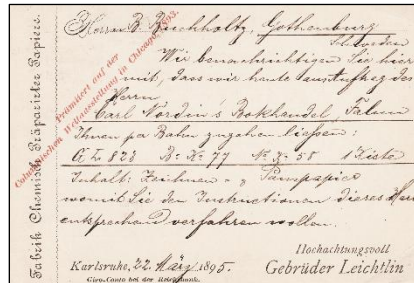 Fabrik Chemisch Präparirter Papiere.
Prämiirt auf der
Columbischen Weltausstellung in Chicago 1893.
Herrn B. Buchholtz, Gothenburg
Schweden
Wir benachrichtigen Sie hier
mit, dass wir heute im Auftrag des
Herrn
Carl Nordin's Bokhandel, Falun
Ihnen per Bahn zugehen liessen:
GL 823 B. K. 77 N. K. 58 1 Kiste
Inhalt: Zeichnen- & Pauspapier
womit Sie den Instructionen dieses Herrn
entsprechend verfahren wollen.
Hochachtungsvoll
Karlsruhe, 22. März 1895. Gebrüder Leichtlin
Giro-Conto bei der Reichsbank.